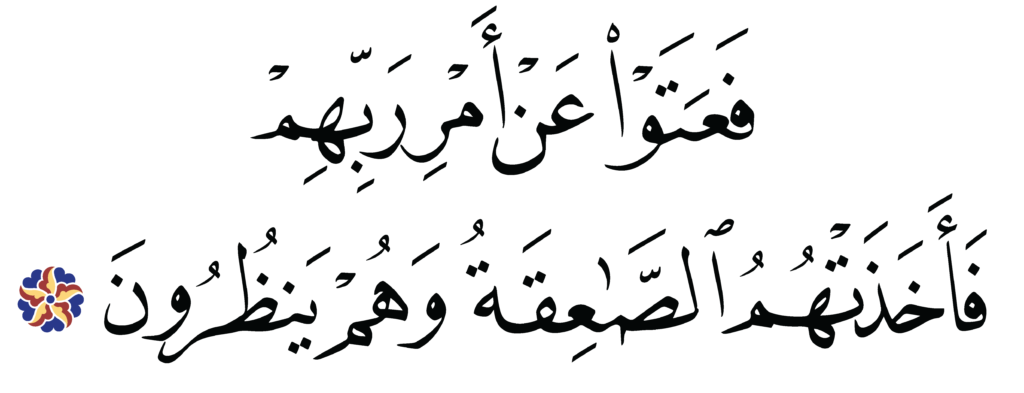 فَعَتَوْا۟ عَنْ أَمْرِ رَبِّهِمْ
فَأَخَذَتْهُمُ ٱلصَّٰعِقَةُ وَهُمْ يَنظُرُونَ